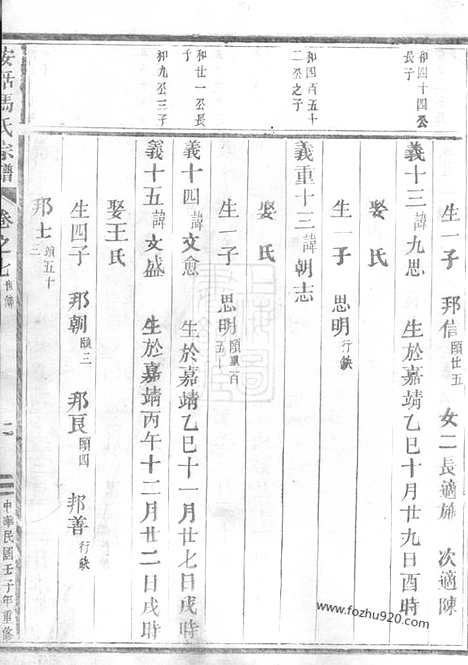 生一子　邦信頤廿五　女二長適施　次適陳
和四十四公長子
義十三諱九思　生於嘉靖乙巳十月廿九日酉時
娶　氏
生一子　思明行缺
和四百五十二公之子
義重十三諱朝志
娶　氏
生一子　思明頤單百五十
和廿一公長
義十四諱文愈　生於嘉靖乙巳十一月廿七日戌時
和九公三子
義十五諱文盛　生於嘉靖丙午十二月廿二日戌時
娶王氏
生四子　邦朝頤三　邦良頤四　邦善行缺
邦士頤五十三
馬氏宗譜
卷之七
二
中華民國壬子年重修
www.fozhu920.com